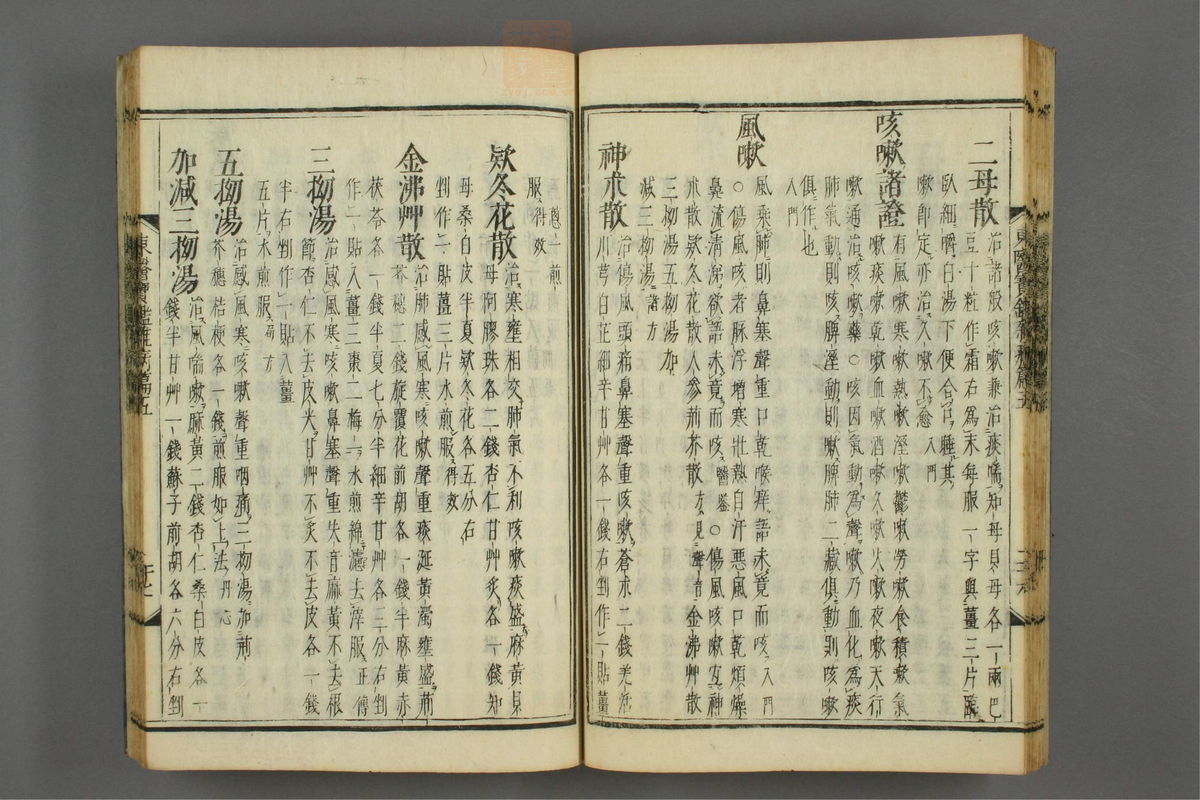 二母散 治諸般咳嗽兼治痰喘知母貝母各一兩巴
豆十粒作霜右爲末每服一字與薑三片
臥細嚼白湯下便合口睡其
嗽卽定亦治久嗽不愈 入門
咳嗽諸證 有風嗽寒嗽熱嗽溼嗽鬱嗽勞嗽食積嗽氣
嗽痰嗽乾嗽血嗽酒嗽久嗽火嗽夜嗽天行
嗽通治咳嗽藥○咳因氣動爲聲嗽乃血化爲痰
肺氣動則咳脾溼動則嗽脾肺二藏俱動則咳嗽
俱作也
入門
風嗽 風乘肺則鼻塞聲重口乾喉痒語未竟而咳 入門
○傷風咳者脉浮增寒壯熱自汗惡風口乾煩燥
鼻流淸涕欲語未竟而咳 醫鑑 ○傷風咳嗽宜神
朮散欵冬花散人參荊芥散 方見聲音 金沸艸散
三拗湯五拗湯加
減三拗湯 諸方
神朮散 治傷風頭痛鼻塞聲重咳嗽蒼朮二錢羌活
川芎白芷細辛甘艸各一錢右剉作一貼薑
三葱一煎
服 得效
欵冬花散 治寒壅相交肺氣不利咳嗽痰盛麻黃貝
母阿膠珠各二錢杏仁甘艸炙各一錢知
母桑白皮半夏欵冬花各五分右
剉作一貼薑三片水煎服 得效
金沸艸散 治肺感風寒咳嗽聲重痰涎黃濁壅盛荊
芥穗二錢旋覆花前胡各一錢半麻黃赤
茯苓各一錢半夏七分半細辛甘艸各三分右剉
作一貼入薑三棗二梅一水煎綿濾去滓服 正傳
三拗湯 治感風寒咳嗽鼻塞聲重失音麻黃不去根
節杏仁不去皮尖甘艸不炙不去皮各一錢
半右剉作一貼入薑
五片水煎服 局方
五拗湯 治感風寒咳嗽聲重咽痛三拗湯加荊
芥穗桔梗各一錢煎服如上法 丹心
加減三拗湯 治風喘嗽麻黃二錢杏仁桑白皮各一
錢半甘艸一錢蘇子前胡各六分右剉